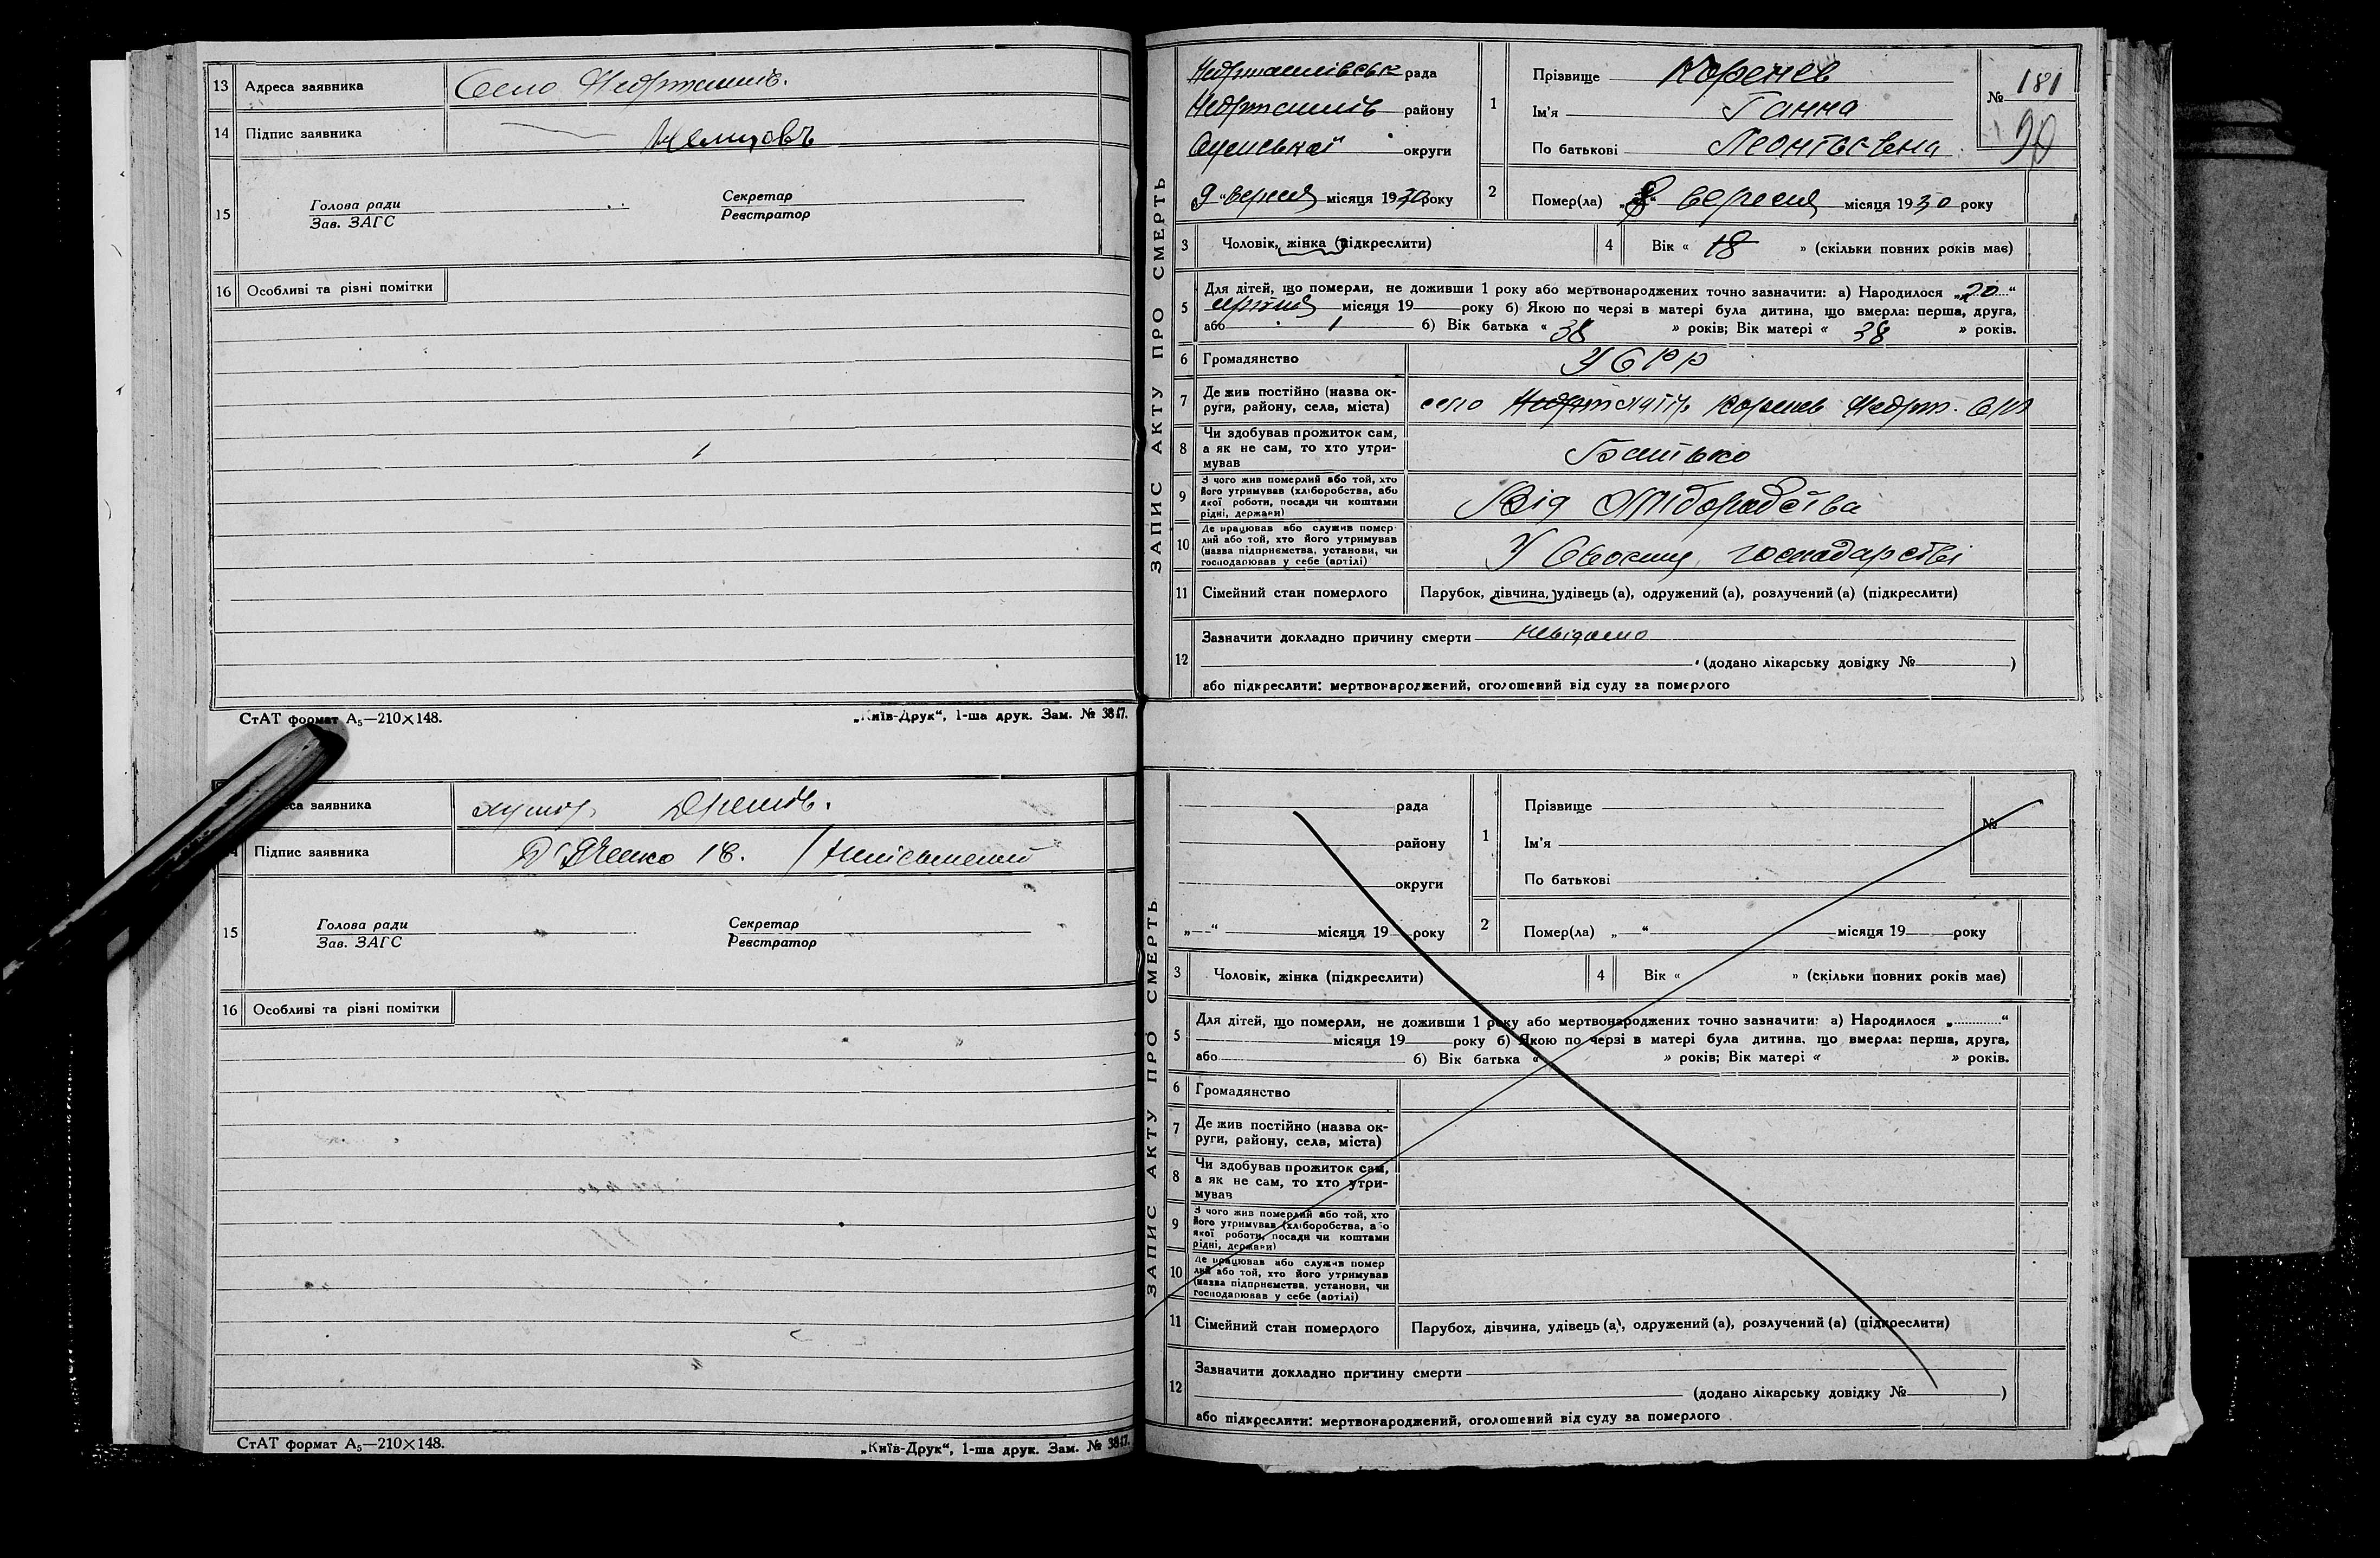 13 Адреса заявника Село Недригайлів.
14 Підпис заявника
15 Голова ради Секретар
Зав. ЗАГС Реєстратор
16 Особливі та різні помітки
СтАТ формат А5—210×148. „Київ-Друк“, 1-ша друк. Зам. № 3847.
са заявника хутор
Підпис заявника
15 Голова ради Секретар
Зав. ЗАГС Реєстратор
16 Особливі та різні помітки
СтАТ формат А5—210×148. „Київ-Друк“, 1-ша друк. Зам. № 3847.
ЗАПИС АКТУ ПРО СМЕРТЬ
рада
району
Сумської округи
9 “ вересня місяця 1930 року
1 Прізвище Коренев
Ім'я Ганна
По батькові Леонтьєвна
№ 181
90
2 Помер(ла) „8“ вересня місяця 1930 року
3 Чоловік, жінка (підкреслити)
4 Вік « 18 » (скільки повних років має)
5 Для дітей, що померли, не доживши 1 року або мертвонароджених точно зазначити: а) Народилося „20“
серпня місяця 19 року б) Якою по черзі в матері була дитина, що вмерла: перша, друга,
або б) Вік батька « 38 » років; Вік матері « 38 » років.
6 Громадянство УСРР
7 Де жив постійно (назва округи, району, села, міста) село
8 Чи здобував прожиток сам, а як не сам, то хто утримував Батько
9 З чого жив померлий або той, хто його утримував (хліборобства, або якої роботи, посади чи коштами рідні, держави) Від Хліборобства
10 Де працював або служив померлий або той, хто його утримував (назва підприємства, установи, чи господарював у себе (артілі) У Своєму господарстві
11 Сімейний стан померлого Парубок, дівчина, удівець (а), одружений (а), розлучений (а) (підкреслити)
12 Зазначити докладно причину смерти невідомо
(додано лікарську довідку № )
або підкреслити: мертвонароджений, оголошений від суду за померлого
ЗАПИС АКТУ ПРО СМЕРТЬ
рада
району
округи
„ “ місяця 19 року
1 Прізвище
Ім'я
По батькові
№
2 Помер(ла) „ “ місяця 19 року
3 Чоловік, жінка (підкреслити)
4 Вік « » (скільки повних років має)
5 Для дітей, що померли, не доживши 1 року або мертвонароджених точно зазначити: а) Народилося „ “
місяця 19 року б) Якою по черзі в матері була дитина, що вмерла: перша, друга,
або б) Вік батька « » років; Вік матері « » років.
6 Громадянство
7 Де жив постійно (назва округи, району, села, міста)
8 Чи здобував прожиток сам, а як не сам, то хто утримував
9 З чого жив померлий або той, хто його утримував (хліборобства, або якої роботи, посади чи коштами рідні, держави)
10 Де працював або служив померлий або той, хто його утримував (назва підприємства, установи, чи господарював у себе (артілі)
11 Сімейний стан померлого Парубок, дівчина, удівець (а), одружений (а), розлучений (а) (підкреслити)
12 Зазначити докладно причину смерти
(додано лікарську довідку № )
або підкреслити: мертвонароджений, оголошений від суду за померлого